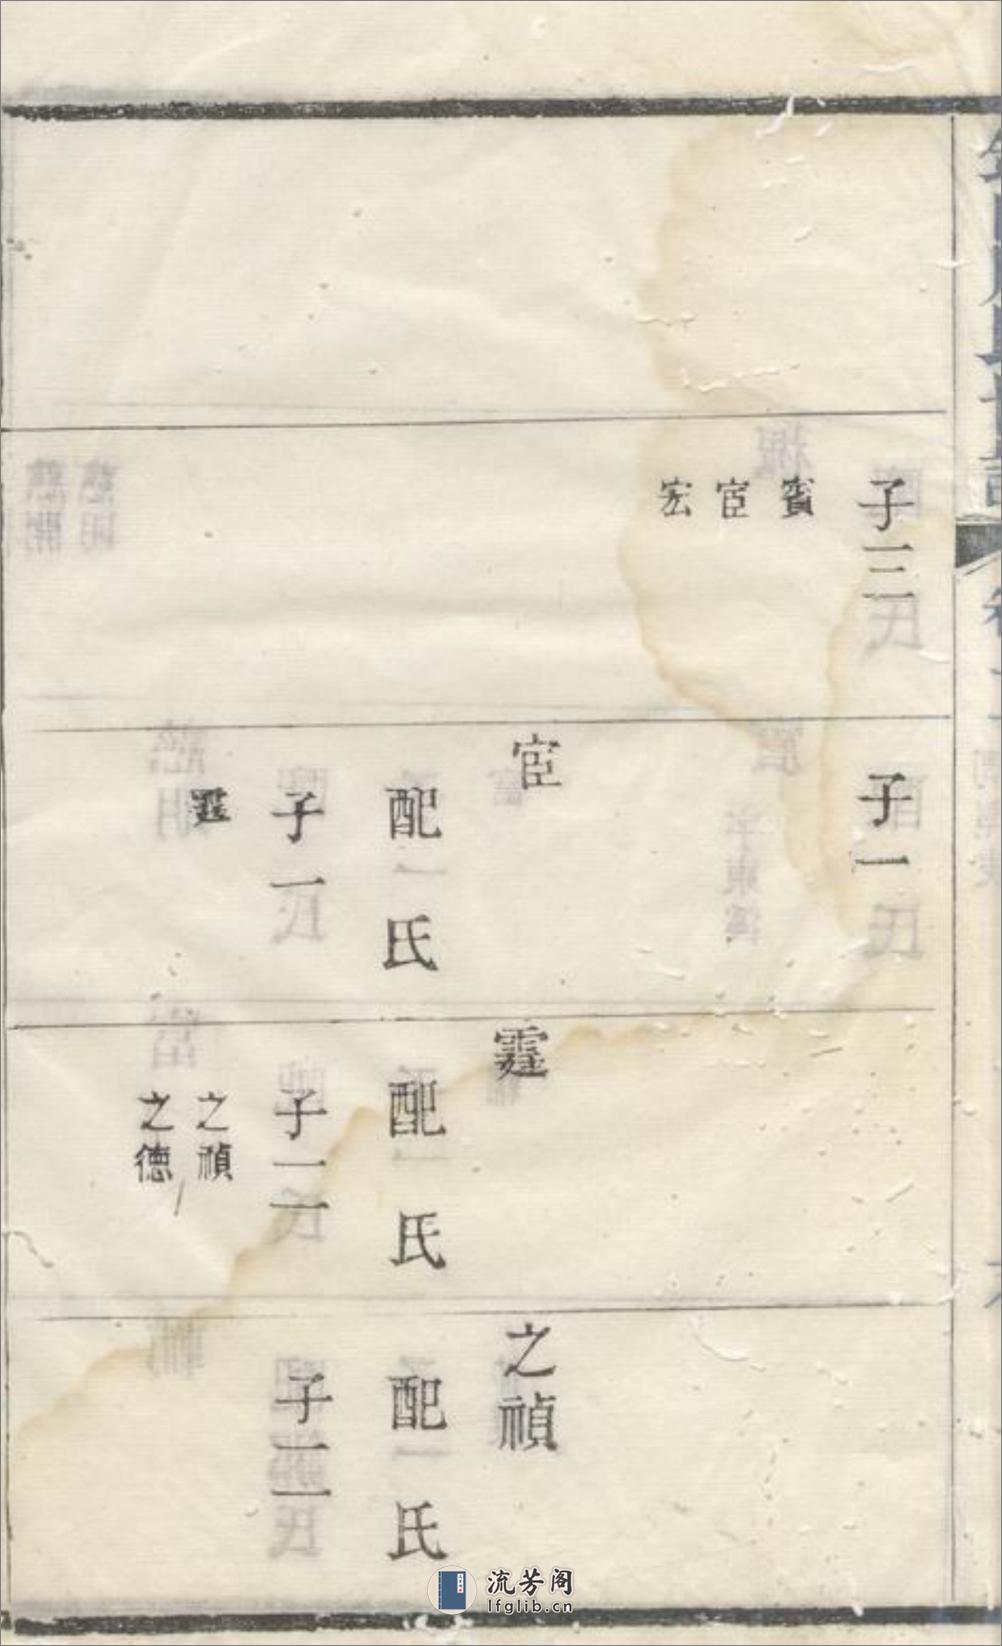 子三
賓
宧
宏
子一
宧
配
氏
子一
霆
霆
配
氏
子二
之禎
之德
之禎
配
氏
子二
流芳阁
lfglib.cn